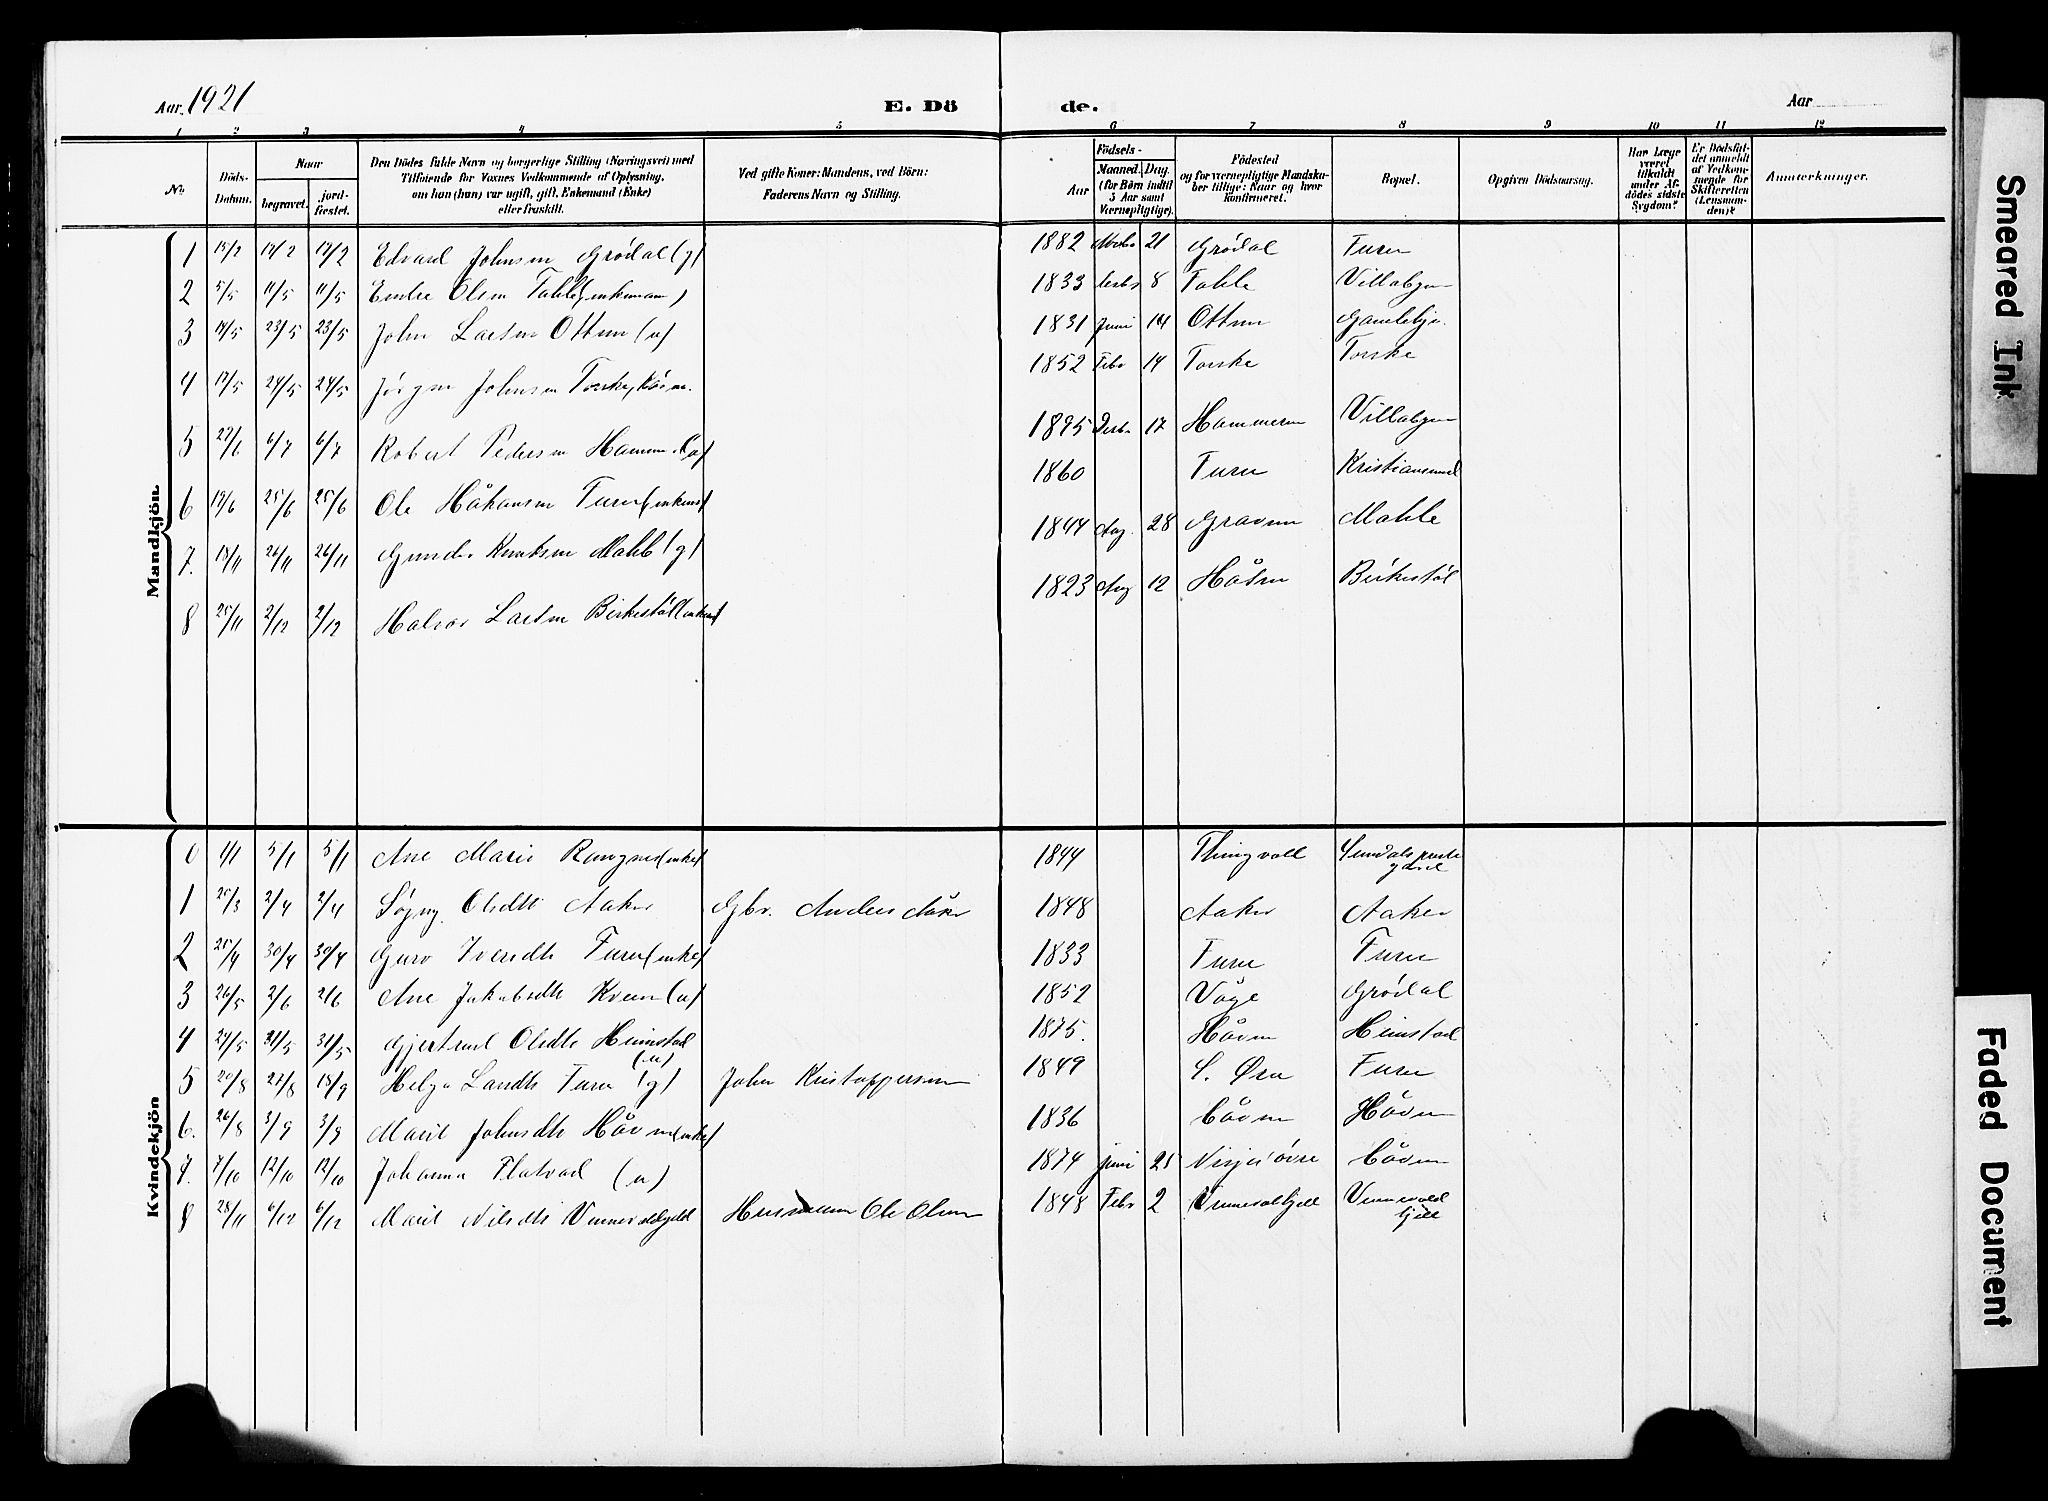 Aar 1921 E. Dö de. Aar
1 2 3 4 5 6 7 8 9 10 11 12
No
Döds-
Datum.
Naar
begravet.
jord-
fæstet.
Den Dödes fulde Navn og borgerlige Stilling (Næringsvei) med
Tilføiende for Voxnes Vedkommende af Oplysning,
om han (hun) var ugift, gift, Enkemand (Enke)
eller fraskilt.
Ved gifte Koner: Mandens, ved Börn:
Faderens Navn og Stilling.
Aar
Födsels-
Maaned. Dag.
(for Börn indtil
5 Aar samt
Værnepligtige).
Födested
og for værnepligtige Mandska-
ber tillige: Naar og hvor
konfirmeret.
Bopæl.
Opgiven Dödsaarsag.
Har Læge
været
tilkaldt
under Af-
dödes sidste
Sygdom?
Er Dødsfal-
det anmeldt
af Vedkom-
mende for
Skifteretten
(Lensman-
den)?
Anmærkninger.
Mandkjön.
1 15/2 17/2 17/2 Edvard Johnsen Grödal (g) 1882 21 Grödal Furu
2 5/5 11/5 11/5 Endre Olsen Tahle (enkemann) 1833 8 Tahle Villabyen
3 14/5 23/5 23/5 John Larsen Ottem (u) 1831 Juni 14 Ottem
4 17/5 24/5 24/5 Jörgen Johnsen Torske 1852 Febr 14 Torske Torske
5 27/6 6/7 6/7 Robert Pedersen Hammer (u) 1895 Desbr 17 Hammeren Villabyen
6 19/6 25/6 25/6 Ole Håkansen Furu (enkem) 1860 Furu Kristiansund
7. 18/11 26/11 26/11 Gunder Knutsen Mahle (g) 1844 Aug. 28 Gravem Mahle
8 25/11 2/12 2/12 Halvor Larsen Birkestöl (enkem) 1823 Aug 12 Håsen Birkestöl
Kvindekjön
0 1/1 5/1 5/1 Ane Marie Rangnes (enke) 1844 Thingvoll Sundals preste
gård
1 20/3 2/4 2/4 Olsdtr Aaker Gbr. Anders Aaker 1848 Aaker Aaker
2 25/4 30/4 30/4 Guro Iversdtr Furu (enke) 1833 Furu Furu
3 26/5 2/6 2/6 Ane Jakobsdtr Kvern (u) 1852 Våge Grödal
4 24/5 31/5 31/5 Gjertrud Olsdtr Heimstad
(u) 1875. Håven Heimstad
5 20/8 27/8 18/9 Helga Larsdtr Furu (g) John Kristoffersen 1849 S. Øra Furu
6. 26/8 3/9 3/9 Marit Johnsdtr Håven (enke) 1836 Håven
7. 7/10 12/10 12/10 Johanna Flatvad (u) 1874 juni 25
8 28/11 6/12 6/12 Marit Nilsdtr Vennevoldhjell Husmann Ole Olsen 1848 Febr 2 Vennevoldhjell Vennevold
hjell
Smeared Ink
Faded Document